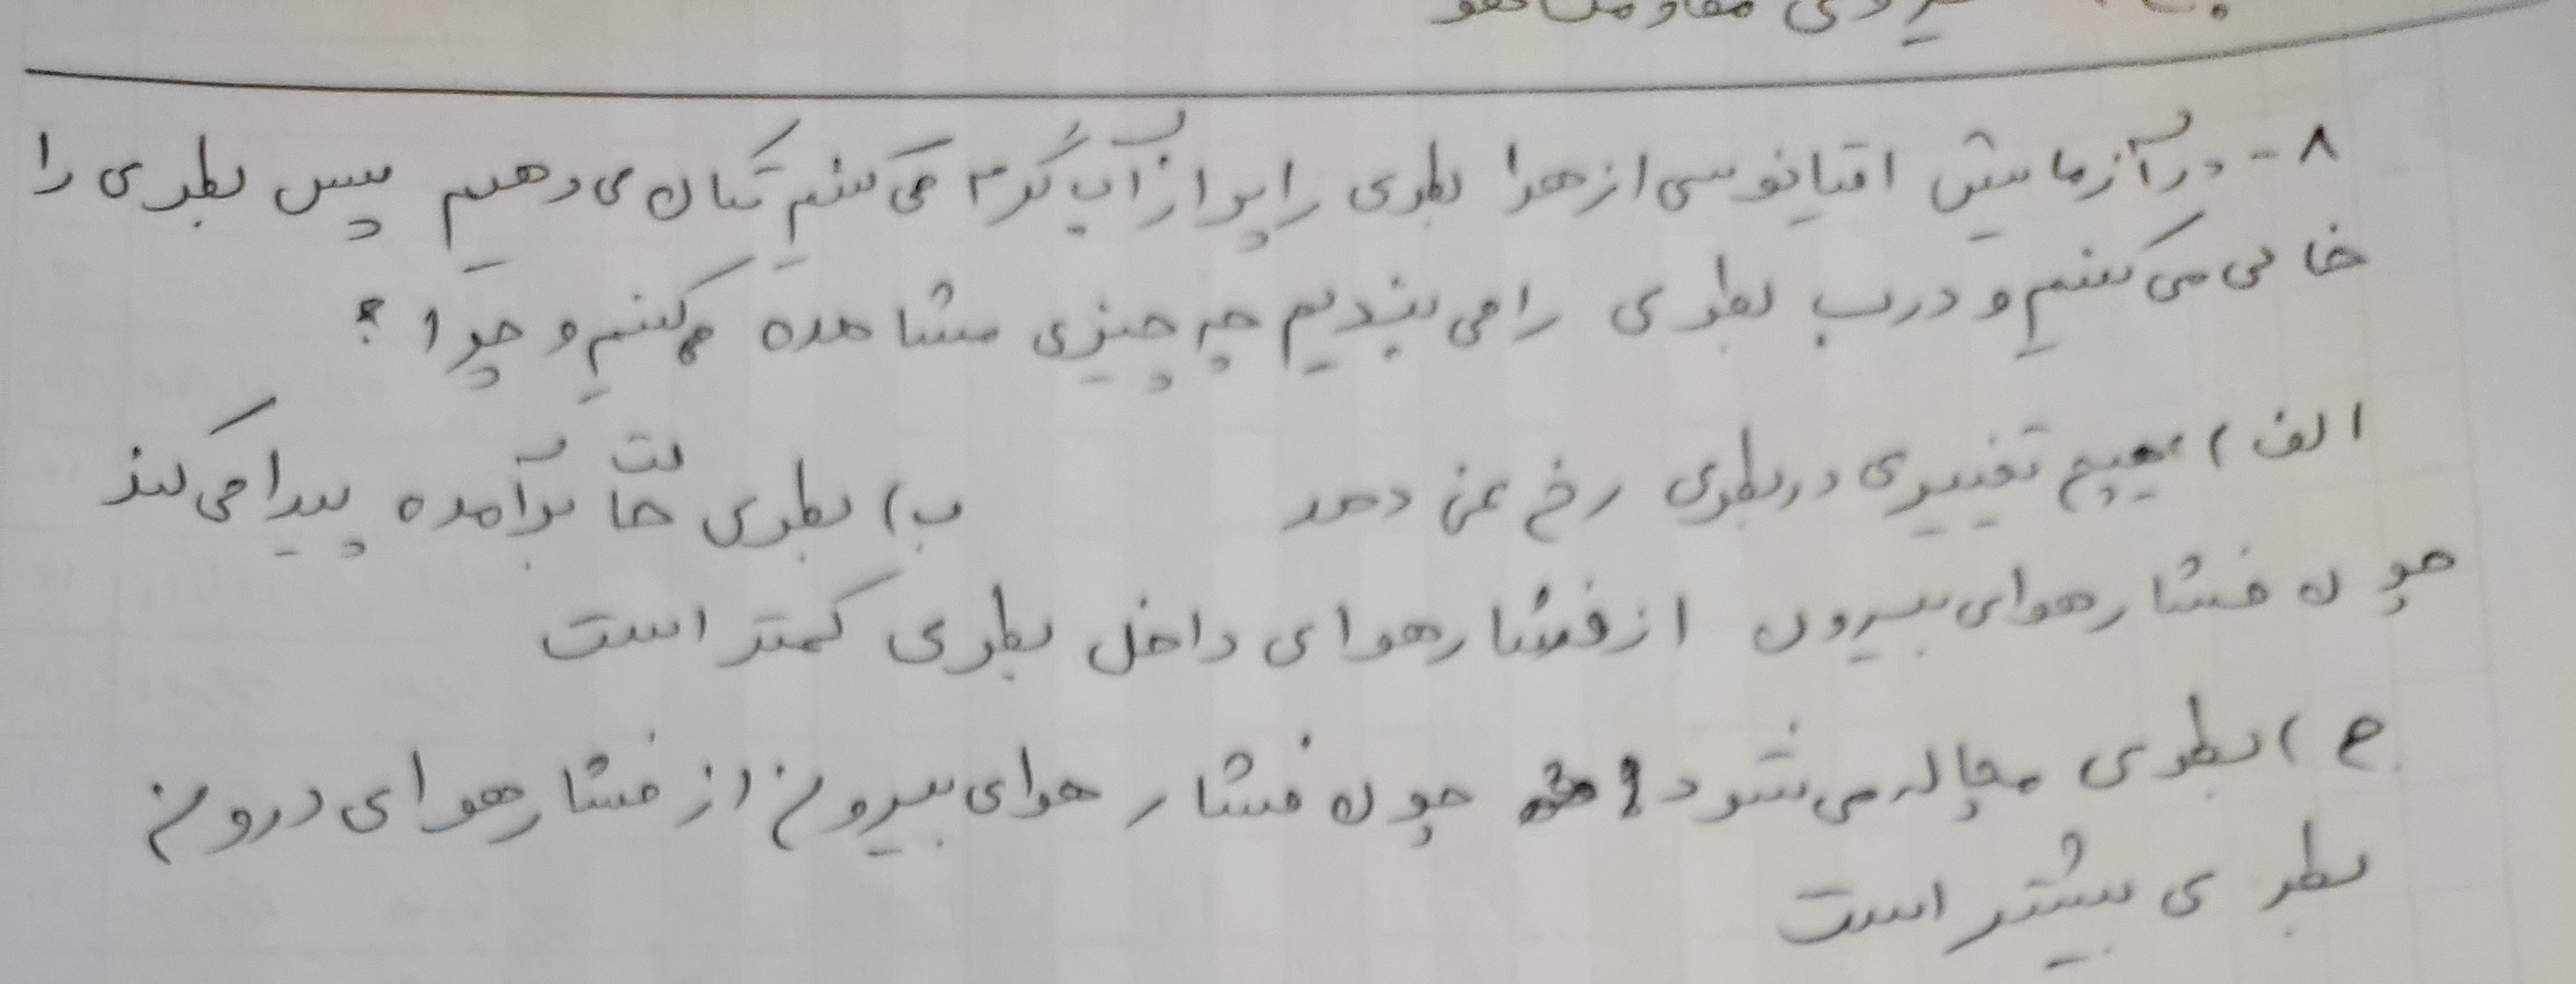 ۸- در آزمایش اقیانوسی از هوا بطری را پر از آب گرم می کنیم تکان می دهیم پس بطری را
خالی می کنیم و درب بطری را می بندیم چه چیزی مشاهده میکنیم و چرا ؟
الف) هیچ تغییری در بطری رخ نمی دهد ب) بطری حالت برآمده پیدا می کند
چون فشار هوای بیرون از فشار هوای داخل بطری کمتر است
ج) بطری مچاله می شود چون فشار هوای بیرون از فشار هوای درون
بطری بیشتر است